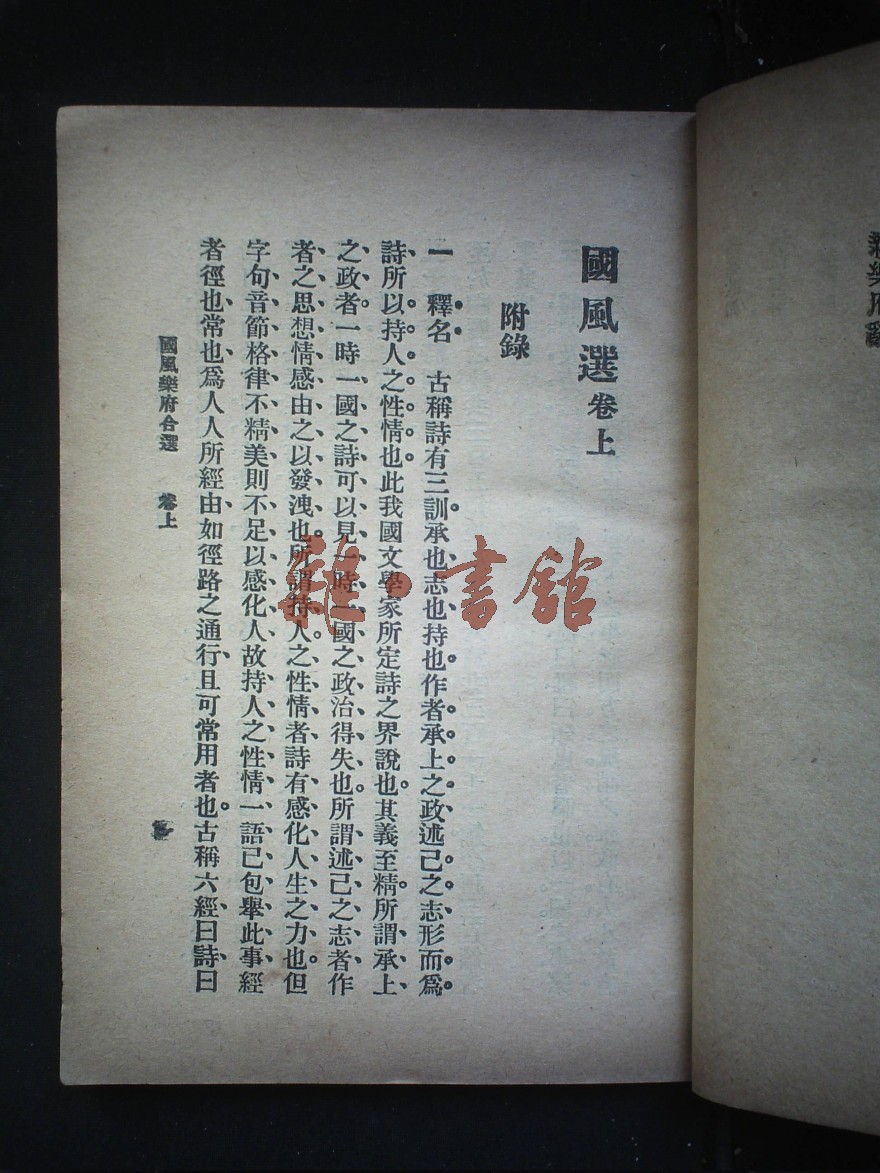 國風選卷上
附錄
一 釋名 古稱詩有三訓。承也、志也、持也。作者承上之政、述己之志、形而爲
詩、所以持人之性情也此我國文學家所定詩之界說也。其義至精。所謂承上
之政者。一時一國之詩、可以見一時一國之政治得失也。所謂述己之志者作
者之思想情感由之以發洩也。所謂持人之性情者、詩有感化人生之力也。但
字句音節格律不精美、則不足以感化人、故持人之性情一語、已包舉此事、經
者徑也、常也、爲人人所經由、如徑路之通行、且可常用者也。古稱六經、曰詩、曰
國風樂府合選 卷上
雜·書館